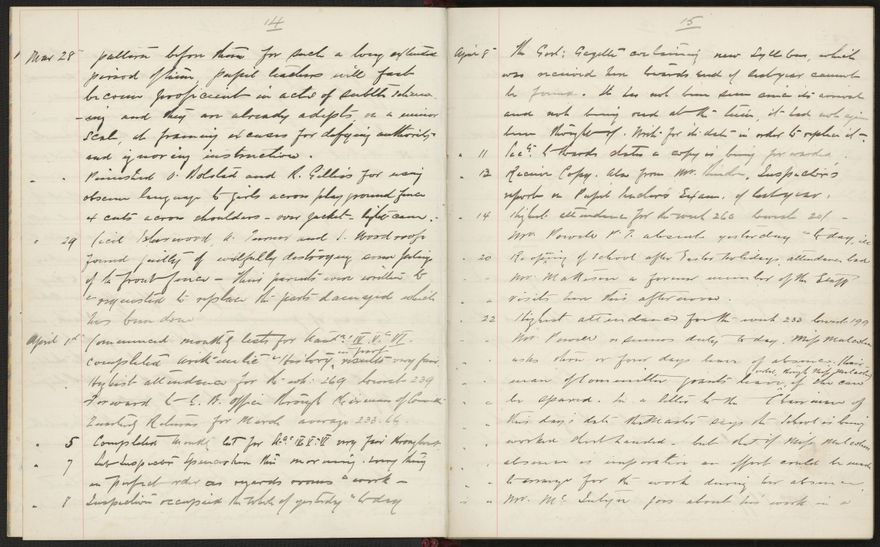 14
Mar 28 pattern before them for such a long extended
period of time, pupil teachers will fast
become proficient in acts of subtle
and they are already adepts, on a minor
scale, at framing excuses for defying authority
and ignoring instruction.
" " Punished O. Holstad and R. Gillies for using
obscene language to girls across play ground fence
4 cuts across shoulders - over jacket - light cane.
" 29 Cecil Isherwood, A. Turner and
found guilty of wilfully destroying some palings
of the front fence - Their parents were written to
& requested to replace the parts damaged which
has been done
April 1st Commenced monthly tests for
completed arithmetic & History in part results very fair
Highest attendance for the wk: 269 lowest 239
Forward to E. B. office through Chairman of Comm
Quarterly Returns for March average 233.66
" 5 Completed monthly test for IV V & VI very fair throughout
" 7 Sub-Inspector this morning. Every thing
in perfect order as regards rooms & work -
" 8 Inspection occupied the whole of yesterday & to day
15
April 8 The Govt: Gazette containing new Syllabus, which
was received here towards end of last year cannot
be found. It has not been seen since its arrival
and not being used at the time, it had not again
been thought of. Wrote for do date in order to replace it -
" 11 Secty: to Board states a copy is being forwarded.
" 13 Receive Copy. Also from Mr. Inspector's
reports on Pupil Teacher's Exam. of last year.
" 14 Highest attendance for the week 260 lowest 201 -
Mr. Powell P. T. absent yesterday & to day, ill
" 20 Re-opening of School after Easter holidays, attendance bad
" " Mr. Matheson a former member of the Staff
" " visits here this afternoon.
" 22 Highest attendance for the week 233 lowest 199
" " Mr. Powell resumes duty to day. Miss
" " asks three or four days leave of absence. Chair
" " man of Committee grants leave, if she can
" " be spared. In a letter to the Chairman of
" " this day's date the Master says the School is being
" " worked short handed - but that if Miss
" " absence is imperative an effort could be made
" " to arrange for the work during her absence
" " Mr. goes about his work in a